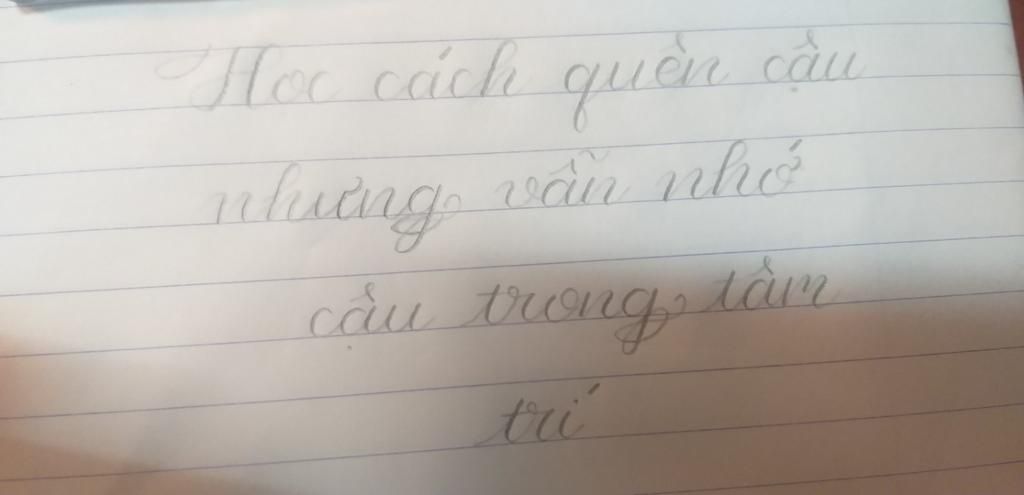 Hoc cách quên cậu
nhưng vẫn nhớ
cậu trong tâm
trí